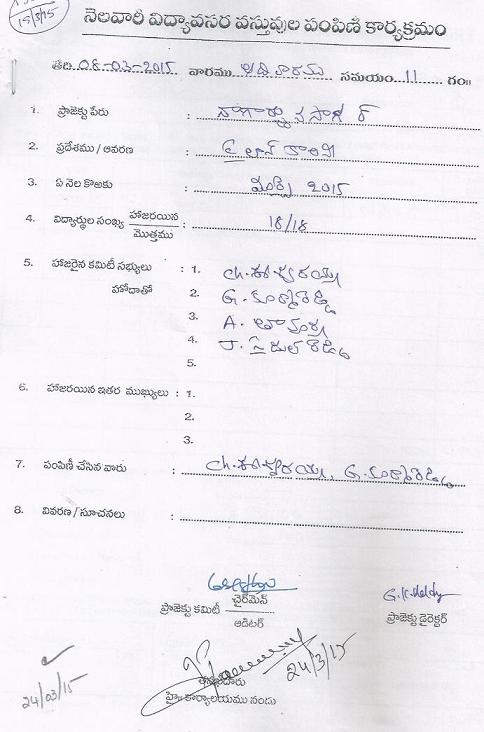 19/3/15
నెలవారీ విద్యావసర వస్తువుల పంపిణీ కార్యక్రమం
తేది 08-03-2015 వారము ఆదివారము సమయం 11 గం॥
1. ప్రాజెక్టు పేరు : నాగార్జున సాగర్
2. ప్రదేశము / ఆవరణ : హిల్ కాలనీ
3. ఏ నెల కొఱకు : మార్చి 2015
4. విద్యార్థుల సంఖ్య హాజరయిన / మొత్తము : 18/18
5. హాజరైన కమిటీ సభ్యులు : 1. Ch. ఈశ్వరయ్య
హోదాతో 2. G. కూర్మారెడ్డి
3. A.
4. J. సైదులు రెడ్డి
5.
6. హాజరయిన ఇతర ముఖ్యులు : 1.
2.
3.
7. పంపిణీ చేసిన వారు : Ch. ఈశ్వరయ్య, G. కూర్మారెడ్డి
8. వివరణ / సూచనలు :
ప్రాజెక్టు కమిటీ చైర్‌మెన్ / ఆడిటర్
G.K. Reddy
ప్రాజెక్టు డైరెక్టర్
24/3/15
హై॥ కార్యాలయము నందు
24/03/15